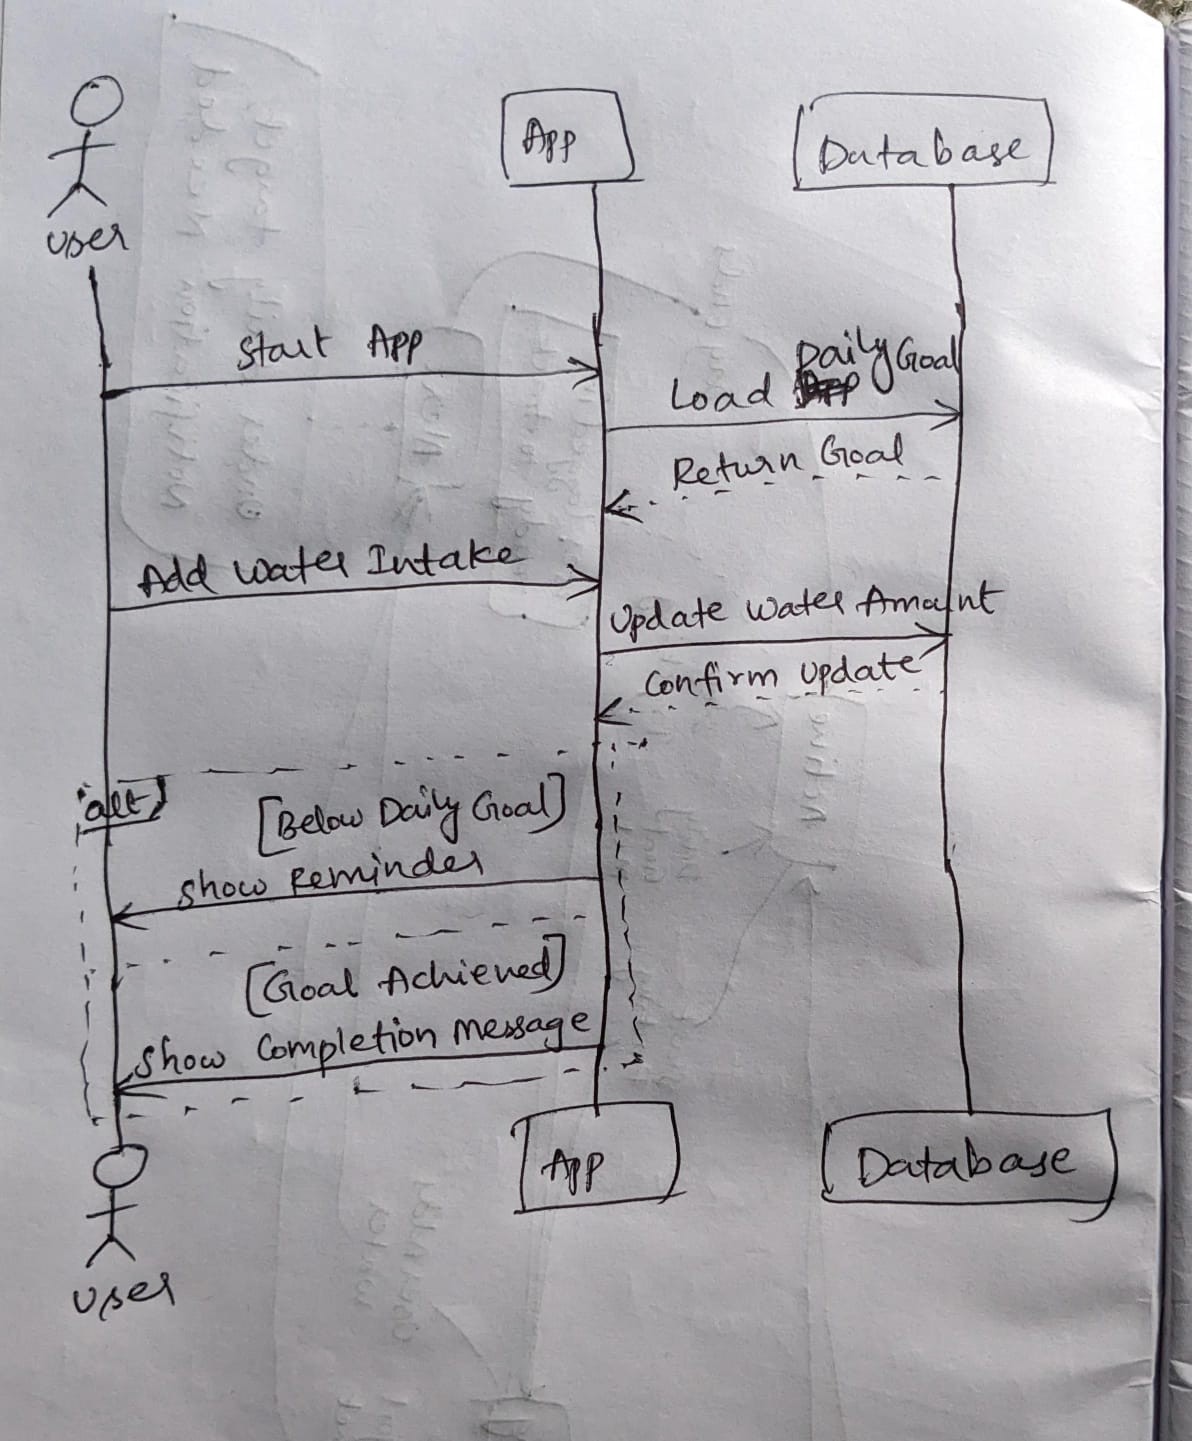 User
App
Database
Start App
Daily Goal
Load
Return Goal
Add Water Intake
Update Water Amount
Confirm Update
alt
[Below Daily Goal]
Show Reminder
[Goal Achieved]
Show Completion Message
App
Database
User